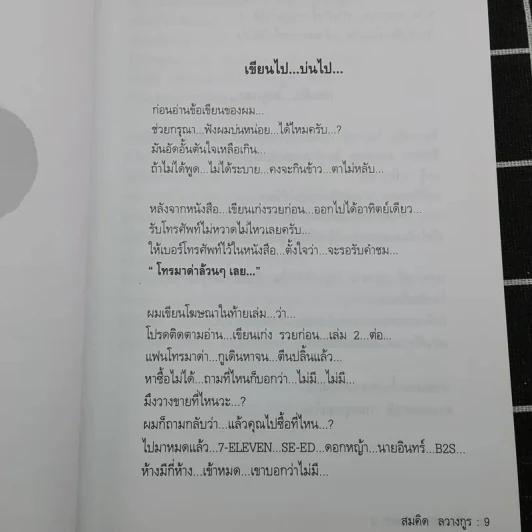 เขียนไป...บ่นไป...
ก่อนอ่านข้อเขียนของผม...
ช่วยกรุณา...ฟังผมบ่นหน่อย...ได้ไหมครับ...?
มันอัดอั้นตันใจเหลือเกิน...
ถ้าไม่ได้พูด...ไม่ได้ระบาย...คงจะกินข้าว...ตาไม่หลับ...
หลังจากหนังสือ...เขียนเก่งรวยก่อน...ออกไปได้อาทิตย์เดียว...
รับโทรศัพท์ไม่หวาดไม่ไหวเลยครับ...
ให้เบอร์โทรศัพท์ไว้ในหนังสือ...ตั้งใจว่า...จะรอรับคำชม...
“ โทรมาด่าล้วนๆ เลย...”
ผมเขียนโฆษณาในท้ายเล่ม...ว่า...
โปรดติดตามอ่าน...เขียนเก่ง รวยก่อน...เล่ม 2...ต่อ...
แฟนโทรมาด่า...กูเดินหาจน...ตีนปลิ้นแล้ว...
หาซื้อไม่ได้...ถามที่ไหนก็บอกว่า...ไม่มี...ไม่มี...
มึงวางขายที่ไหนวะ...?
ผมก็ถามกลับว่า...แล้วคุณไปซื้อที่ไหน...?
ไปมาหมดแล้ว...7-ELEVEN...SE-ED...ดอกหญ้า...นายอินทร์...B2S...
ห้างมีกี่ห้าง...เข้าหมด...เขาบอกว่าไม่มี...
สมคิด ลวางกูร : 9